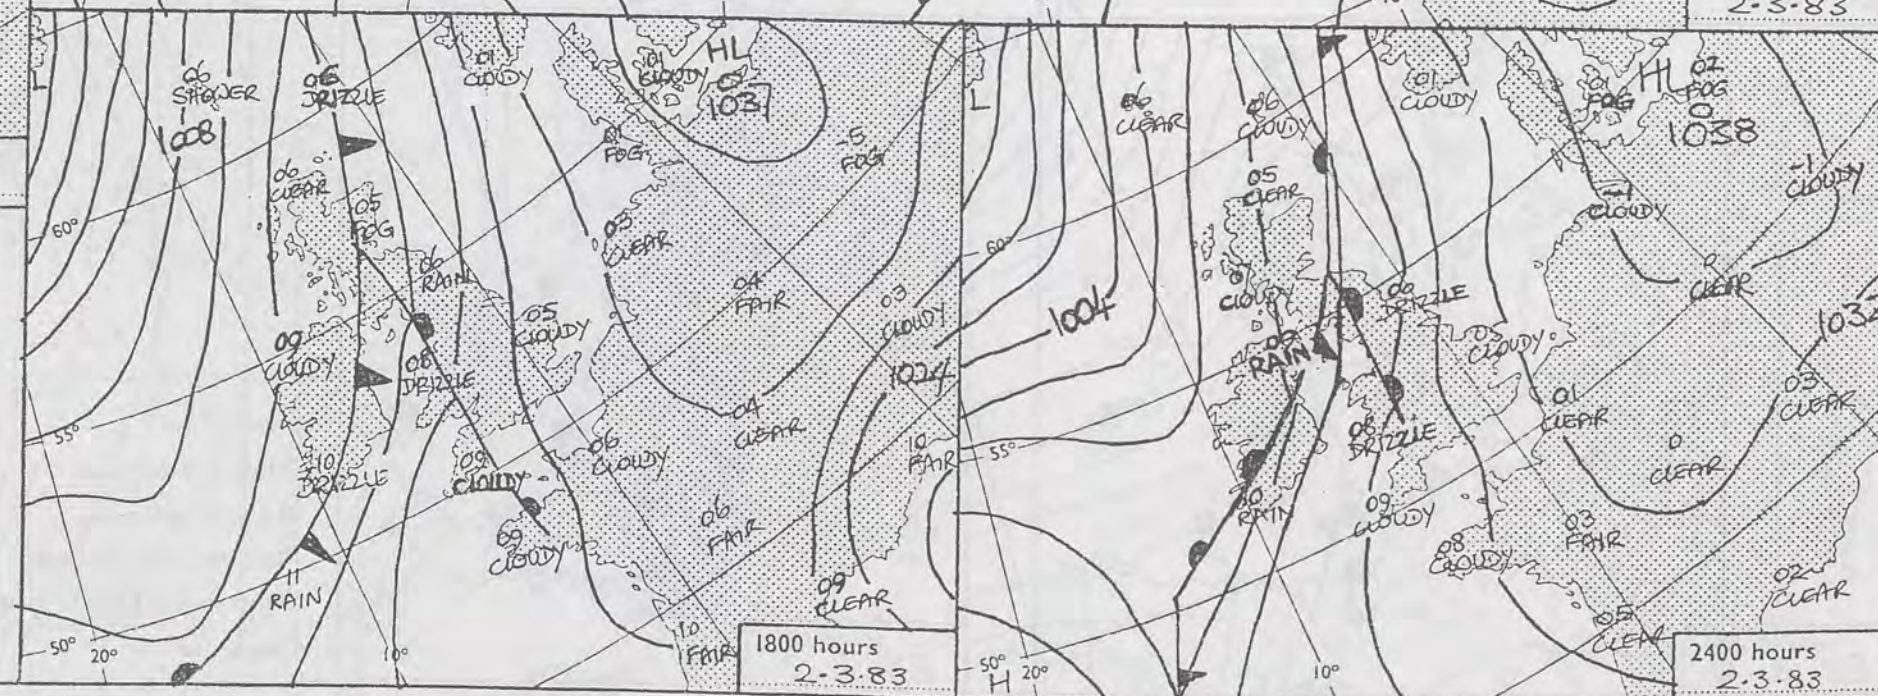 2-3-83
L
06
SHOWER
1008
06
DRIZZLE
01
CLOUDY
01
CLOUDY
HL
1037
01
FOG
-5
FOG
06
CLEAR
05
FOG
60°
06
RAIN
03
CLEAR
04
FAIR
03
CLOUDY
09
CLOUDY
05
CLOUDY
08
DRIZZLE
1024
55°
04
CLEAR
10
DRIZZLE
09
CLOUDY
06
CLOUDY
10
FAIR
06
FAIR
09
CLOUDY
11
RAIN
09
CLEAR
50°
20°
10°
10
FAIR
1800 hours
2-3-83
L
06
CLEAR
06
CLOUDY
01
CLOUDY
01
FOG
HL
02
FOG
0
1038
05
CLEAR
-1
CLOUDY
-1
CLOUDY
60°
CLOUDY
0
CLEAR
06
DRIZZLE
1004
RAIN
CLOUDY
1032
01
CLEAR
03
CLEAR
55°
08
DRIZZLE
0
CLEAR
10
RAIN
09
CLOUDY
03
FAIR
08
CLOUDY
02
CLEAR
05
CLEAR
50°
H
20°
10°
2400 hours
2-3-83